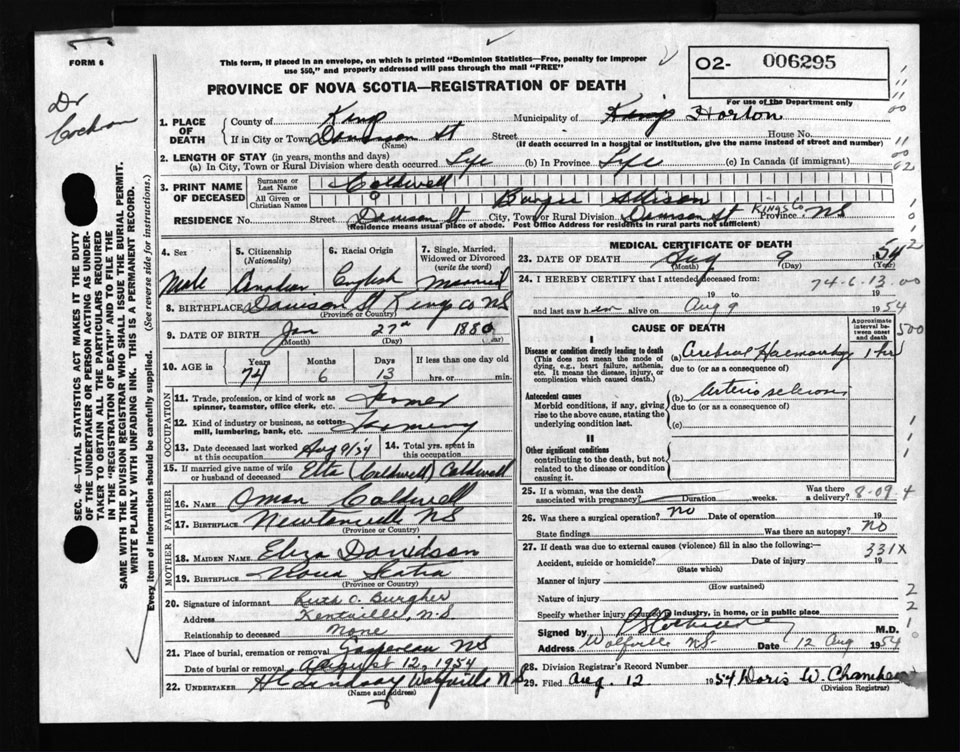 FORM 6
This form, if placed in an envelope, on which is printed "Dominion Statistics—Free, penalty for improper
use $50," and properly addressed will pass through the mail "FREE"
O2- 006295
PROVINCE OF NOVA SCOTIA—REGISTRATION OF DEATH
For use of the Department only
Dr
Cochran
1. PLACE OF DEATH
County of Kings Municipality of Kings Horton
If in City or Town Davison St Street House No.
(Name) (If death occurred in a hospital or institution, give name instead of street and number)
2. LENGTH OF STAY (in years, months and days)
(a) In City, Town or Rural Division where death occurred Life (b) In Province Life (c) In Canada (if immigrant)
3. PRINT NAME OF DECEASED
Surname or Last Name Coldwell
All Given or Christian Names Burgess Allison
RESIDENCE No. Street Davison St City, Town or Rural Division Davison St Kings Co Province NS
(Residence means usual place of abode. Post Office Address for residents in rural parts not sufficient)
SEC. 46—VITAL STATISTICS ACT MAKES IT THE DUTY
OF THE UNDERTAKER OR PERSON ACTING AS UNDER-
TAKER TO OBTAIN ALL THE PARTICULARS REQUIRED
IN THE "REGISTRATION OF DEATH" AND TO FILE THE
SAME WITH THE DIVISION REGISTRAR WHO SHALL ISSUE THE BURIAL PERMIT.
WRITE PLAINLY WITH UNFADING INK. THIS IS A PERMANENT RECORD.
Every item of Information should be carefully supplied. (See reverse side for instructions.)
4. Sex Male
5. Citizenship (Nationality) Canadian
6. Racial Origin English
7. Single, Married, Widowed or Divorced (write the word) Married
8. BIRTHPLACE Davison St Kings Co NS
(Province or Country)
9. DATE OF BIRTH Jan 27th 1880
(Month) (Day) (Year)
10. AGE in Years 74 Months 6 Days 13 If less than one day old hrs. or min.
OCCUPATION
11. Trade, profession or kind of work as spinner, teamster, office clerk, etc. Farmer
12. Kind of industry or business, as cotton-mill, lumbering, bank, etc. Farming
13. Date deceased last worked at this occupation Aug 9/54 14. Total yrs. spent in this occupation
15. If married give name of wife or husband of deceased Etta (Coldwell) Coldwell
FATHER
16. NAME Oman Coldwell
17. BIRTHPLACE Newtonville NS
(Province or Country)
MOTHER
18. MAIDEN NAME Eliza Davidson
19. BIRTHPLACE Nova Scotia
(Province or Country)
20. Signature of informant Ruth O. Burgher
Address Kentville, N.S
Relationship to deceased None
21. Place of burial, cremation or removal Gaspereau NS
Date of burial or removal August 12, 1954
22. UNDERTAKER H C Lindsay Wolfville N.S
(Name and Address)
MEDICAL CERTIFICATE OF DEATH
23. DATE OF DEATH Aug 9 1954
(Month) (Day) (Year)
24. I HEREBY CERTIFY that I attended deceased from:
74-6-13.00
19 to 19
and last saw him alive on Aug 9 1954
CAUSE OF DEATH
Approximate interval between onset and death
I
Disease or condition directly leading to death
(This does not mean the mode of dying, e.g., heart failure, asthenia, etc. It means the disease, injury, or complication which caused death.
(a) Cerebral Haemorrhage 1 hr
due to (or as a consequence of)
Antecedent causes
Morbid conditions, if any, giving rise to the above cause, stating the underlying condition last.
(b) Arterio sclerosis
due to (or as a consequence of)
(c)
II
Other significant conditions
contributing to the death, but not related to the disease or condition causing it.
25. If a woman, was the death associated with pregnancy? Duration weeks. Was there a delivery? 8-09 4
26. Was there a surgical operation? No Date of operation 19
State findings Was there an autopsy? No
27. If death was due to external causes (violence) fill in also the following:—
331X
Accident, suicide or homicide? Date of injury 19
(State which)
Manner of injury
(How sustained)
Nature of injury
Specify whether injury occurred in industry, in home, or in public place
Signed by M.D.
Address Wolfville NS. Date 12 Aug 1954
28. Division Registrar's Record Number
29. Filed Aug. 12 1954 Doris W. Chambers
(Division Registrar)